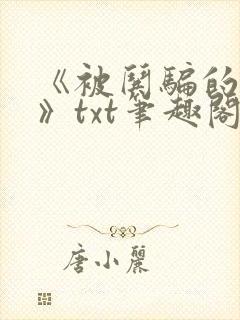 《被闂騙的
》txt筆趣閣
唐小麗